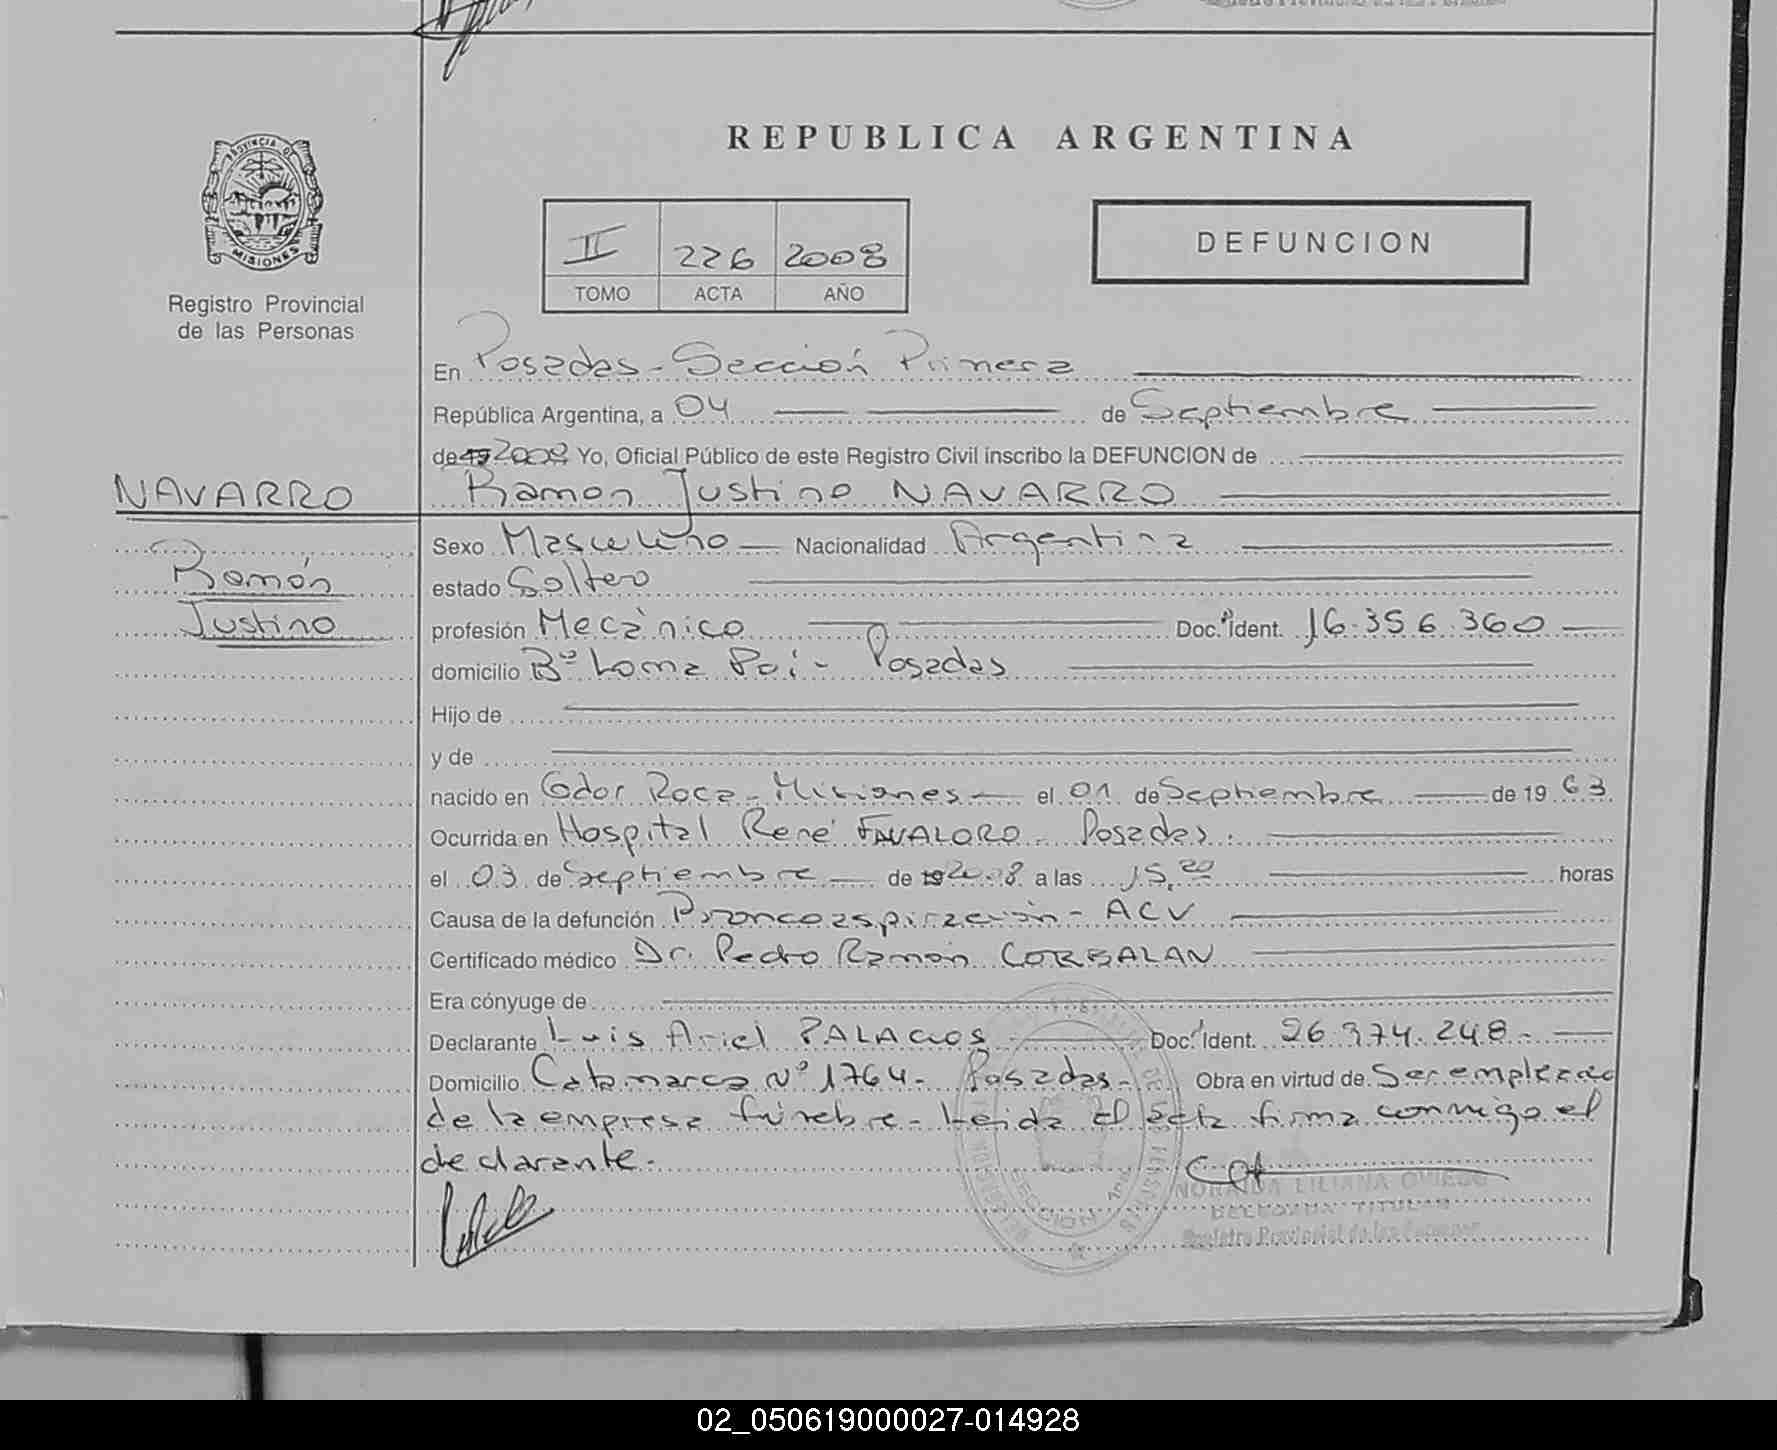 REPUBLICA ARGENTINA
PROVINCIA DE
MISIONES
Registro Provincial
de las Personas
II 226 2008
TOMO ACTA AÑO
DEFUNCION
En Posadas - Sección Primera
República Argentina, a 04 de Septiembre
de 19 2008 Yo, Oficial Público de este Registro Civil inscribo la DEFUNCION de
NAVARRO
Ramon Justino NAVARRO
Ramón
Justino
Sexo Masculino Nacionalidad Argentina
estado Soltero
profesión Mecánico Doc. Ident. 16.356.360
domicilio Bº Loma Poi - Posadas
Hijo de
y de
nacido en Gdor Roca - Misiones el 01 de Septiembre de 19 63
Ocurrida en Hospital René FAVALORO - Posadas.
el 03 de Septiembre de 19 2008 a las 15,20 horas
Causa de la defunción Broncoaspiración - ACV
Certificado médico Dr. Pedro Ramón CORBALAN
Era cónyuge de
Declarante Luis Ariel PALACIOS Doc. Ident. 26.374.248.-
Domicilio Catamarca Nº 1764 - Posadas - Obra en virtud de Ser empleado
de la empresa fúnebre - Leida el acta firma conmigo el
declarante.-
SECCION 1ra
NORAIDA LILIANA OVIEDO
DELEGADA TITULAR
Registro Provincial de las Personas
02_050619000027-014928